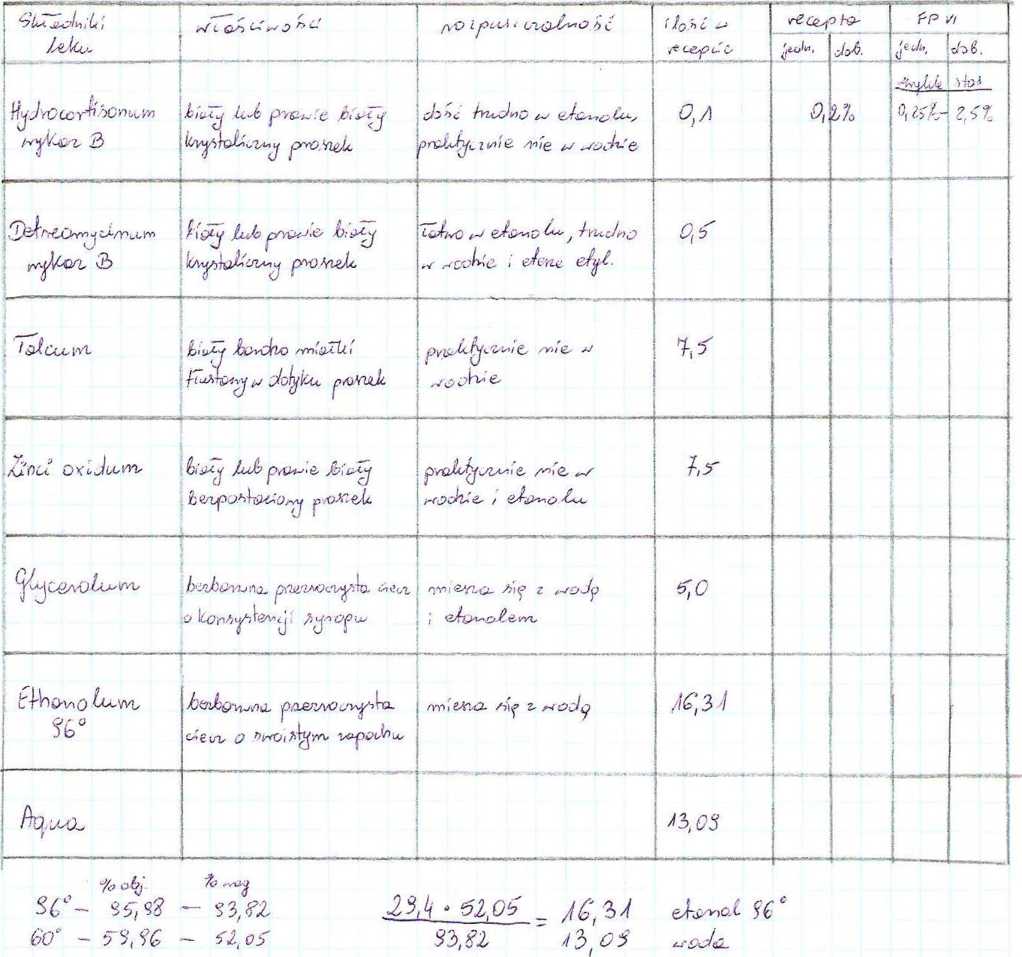 Składniki leku właściwości rozpuszczalność ilość w recepcie recepta FP VI
jedn. dob. jedn. dob.
zwykle stos.
Hydrocortisonum biały lub prawie biały dość trudno w etanolu, 0,1 0,2% 0,25%- 2,5%
wykaz B krystaliczny proszek praktycznie nie w wodzie
Detreomycinum biały lub prawie biały łatwo w etanolu, trudno 0,5
wykaz B krystaliczny proszek w wodzie i eterze etyl.
Talcum biały bardzo miałki praktycznie nie w 7,5
tłustawy w dotyku proszek wodzie
Zinci oxidum biały lub prawie biały praktycznie nie w 7,5
bezpostaciowy proszek wodzie i etanolu
Glycerolum bezbarwna przezroczysta ciecz miesza się z wodą 5,0
o konsystencji syropu i etanolem
Ethanolum bezbarwna przezroczysta miesza się z wodą 16,31
96° ciecz o swoistym zapachu
Aqua 13,09
% obj. % wag
96° – 95,98 – 93,82 29,4 · 52,05 = 16,31 etanol 96°
60° – 59,96 – 52,05 93,82 13,09 woda